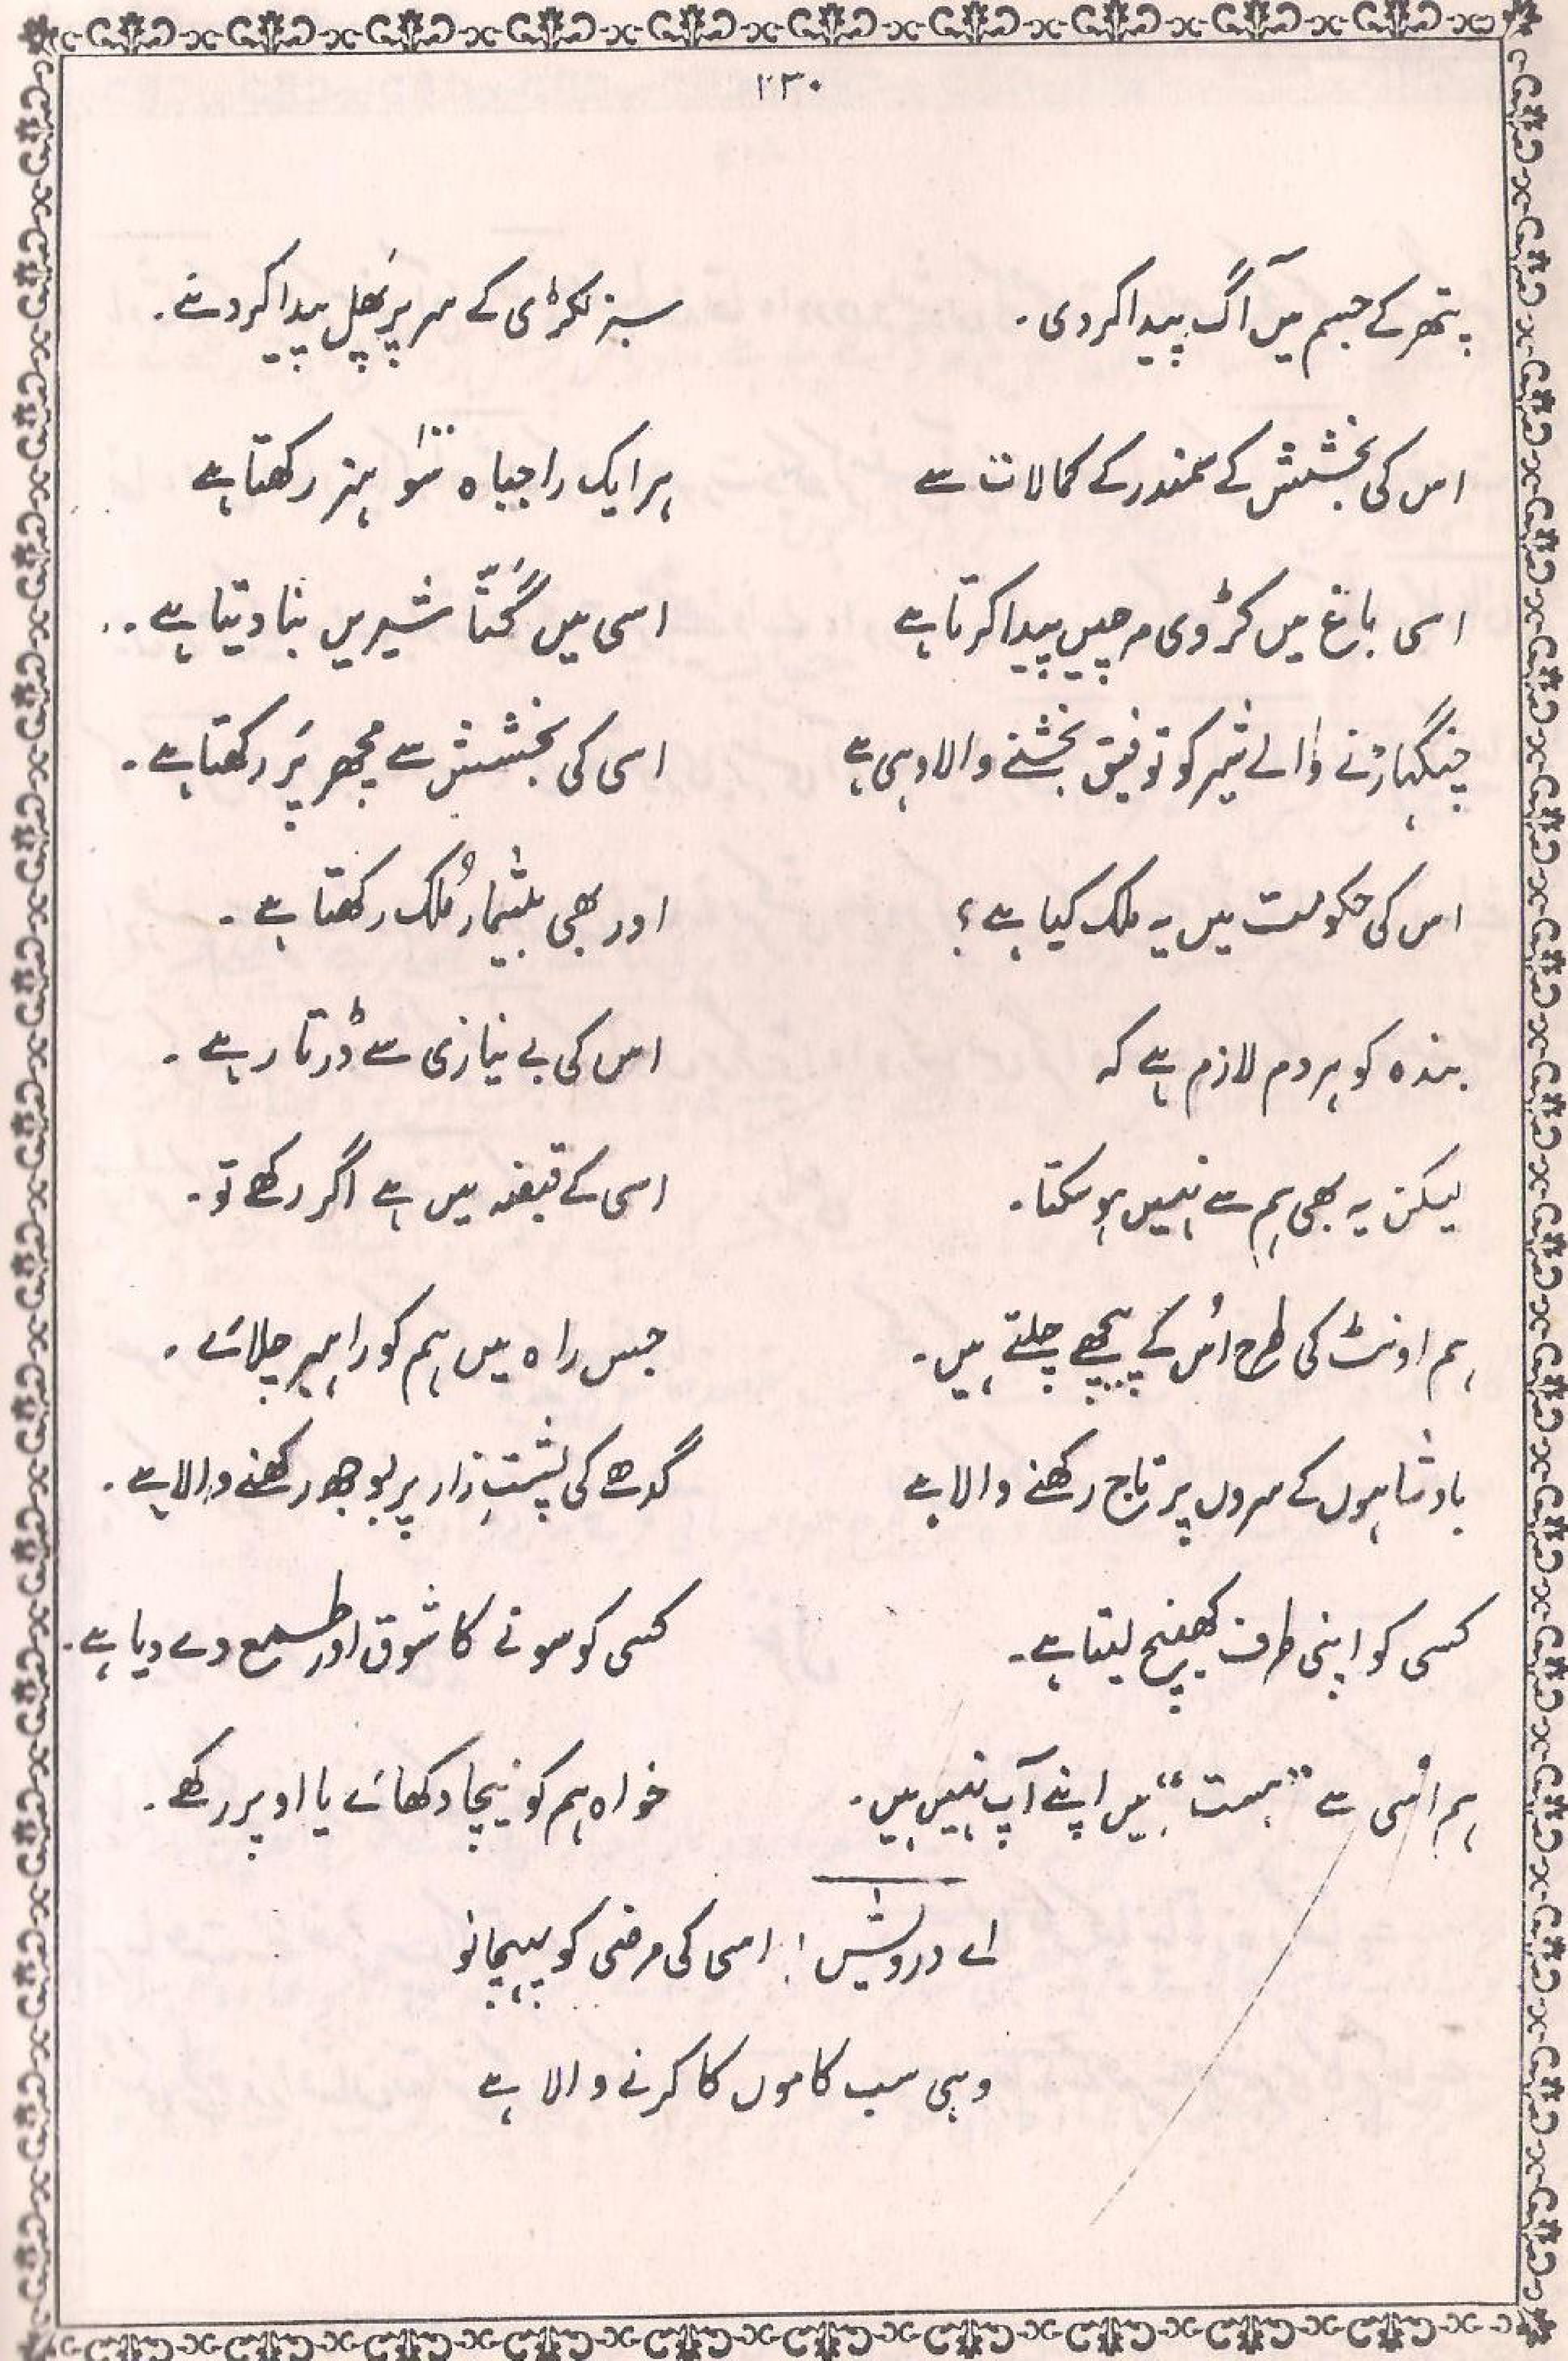 ۲۳۰
پتھر کے جسم میں آگ پیدا کر دی۔ سبز لکڑی کے سر پر پھل پیدا کر دئے۔
اس کی بخشش کے سمندر کے کمالات سے ہر ایک راجباہ سَو ہنر رکھتا ہے
اسی باغ میں کڑوی مرچیں پیدا کرتا ہے اسی میں گنّا شیریں بنا دیتا ہے۔
چنگہاڑنے والے شیر کو توفیق بخشنے والا وہی ہے اسی کی بخشش سے مچھر پَر رکھتا ہے۔
اس کی حکومت میں یہ ملک کیا ہے؟ اور بھی بیشمار مُلک رکھتا ہے۔
بندہ کو ہر دم لازم ہے کہ اس کی بے نیازی سے ڈرتا رہے۔
لیکن یہ بھی ہم سے نہیں ہو سکتا۔ اسی کے قبضہ میں ہے اگر رکھے تو۔
ہم اونٹ کی طرح اُس کے پیچھے چلتے ہیں۔ جس راہ میں ہم کو راہبر چلائے۔
بادشاہوں کے سروں پر تاج رکھنے والا ہے گدھے کی پشتِ زار پر بوجھ رکھنے والا ہے۔
کسی کو اپنی طرف کھینچ لیتا ہے۔ کسی کو سونے کا شوق اور طمع دے دیا ہے۔
ہم اُسی سے "ہست" ہیں اپنے آپ نہیں ہیں۔ خواہ ہم کو نیچا دکھائے یا اوپر رکھے۔
اے درویش! اسی کی مرضی کو پہچانو
وہی سب کاموں کا کرنے والا ہے